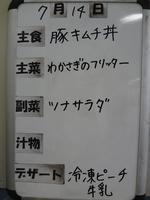 7月14日
主食 豚キムチ丼
主菜 わかさぎのフリッター
副菜 ツナサラダ
汁物
デザート 冷凍ピーチ
牛乳